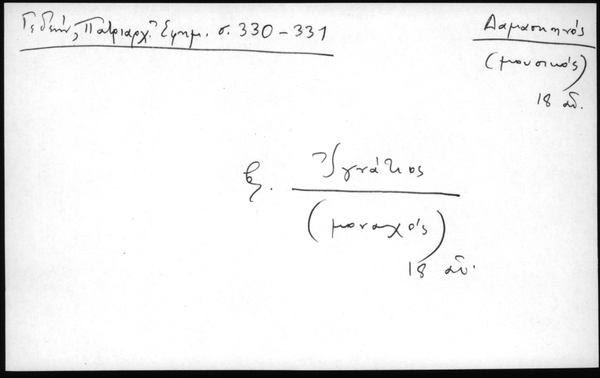 Γεδεών, Πατριαρχ. Ἐφημ. σ. 330-331
Δαμασκηνός
(μουσικός)
18 αἰ.
β. Ἰγνάτιος
(μοναχός)
18 αἰ.